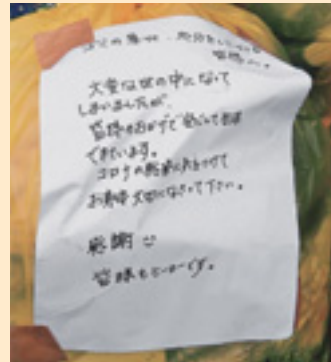 ゴミの集収、処分をしている
皆様へ。
大変な世の中になって
しまいましたが、
皆様のおかげで
できています。
コロナの感染に気をつけて
お身体大切になさって下さい。
感謝
皆様もヒーローです。